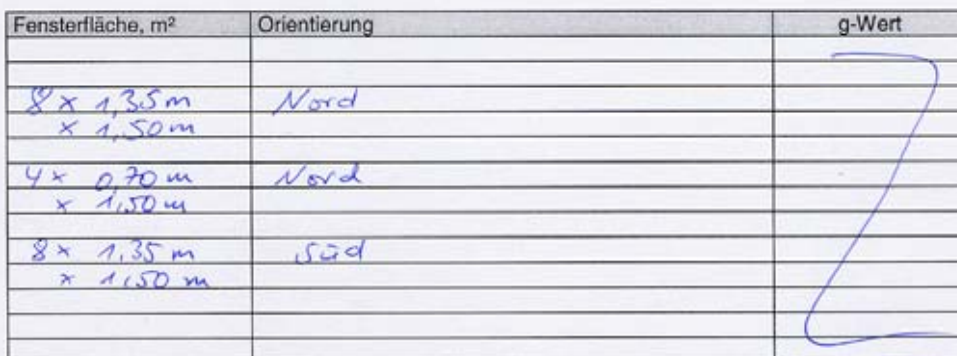 Fensterfläche, m² Orientierung g-Wert
8 x 1,35 m Nord
x 1,50 m
4 x 0,70 m Nord
x 1,50 m
8 x 1,35 m Süd
x 1,50 m